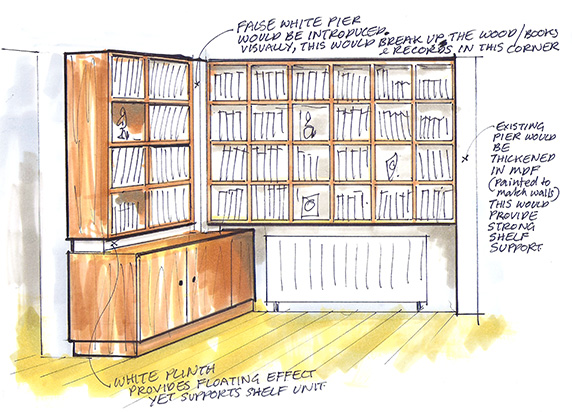 FALSE WHITE PIER
WOULD BE INTRODUCED.
VISUALLY, THIS WOULD BREAK UP THE WOOD/BOOKS
& RECORDS IN THIS CORNER
EXISTING
PIER WOULD
BE
THICKENED
IN MDF
(PAINTED TO
MATCH WALLS)
THIS WOULD
PROVIDE
STRONG
SHELF
SUPPORT
WHITE PLINTH
PROVIDES FLOATING EFFECT
YET SUPPORTS SHELF UNIT.